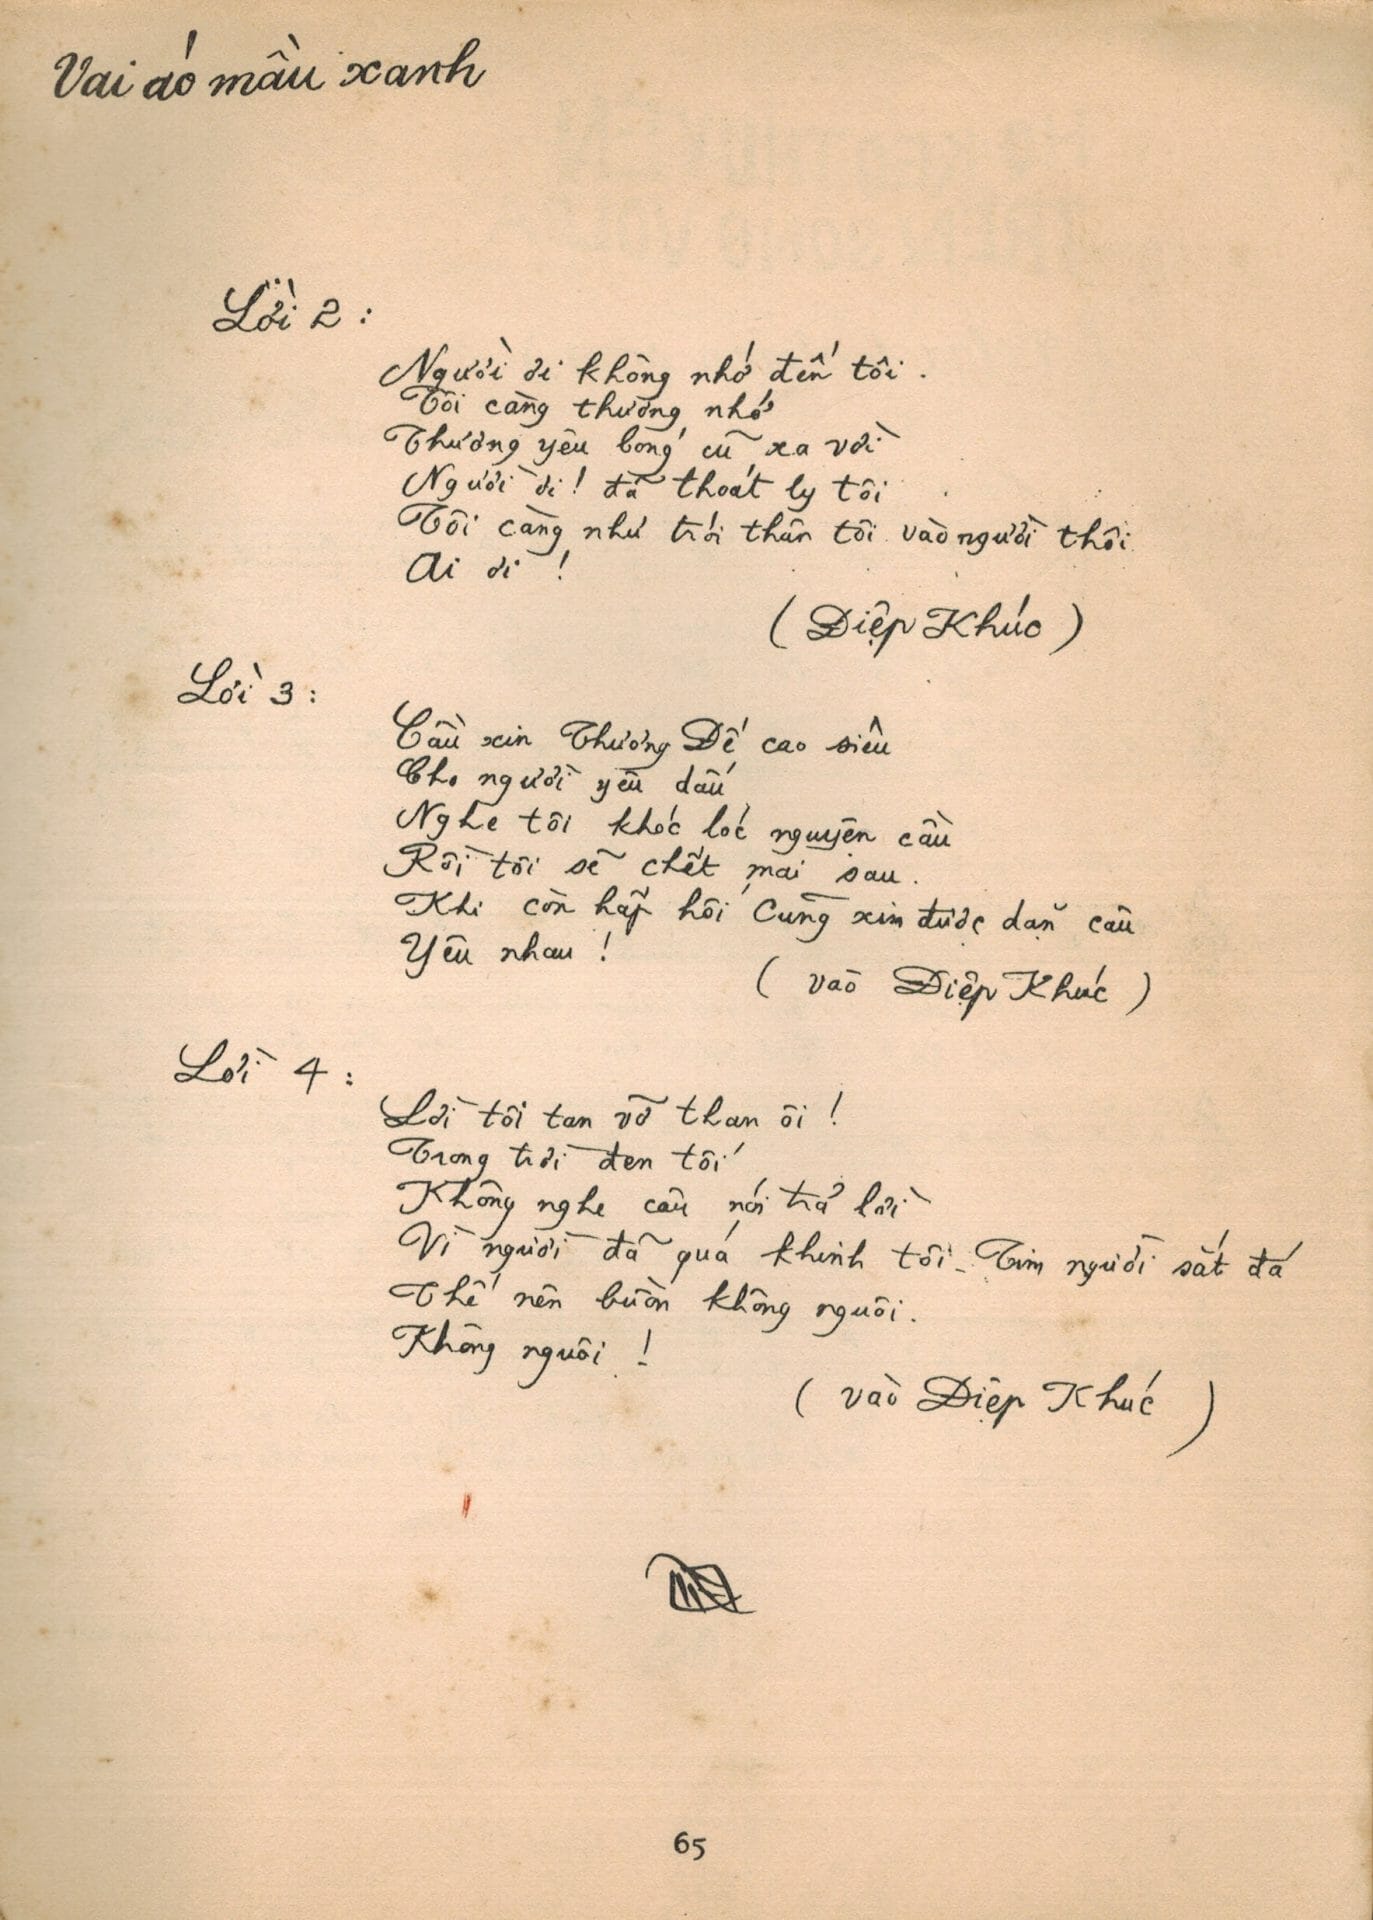 Vai áo mầu xanh
Lời 2 :
Người ơi không nhớ đến tôi .
Tôi càng thương nhớ
Thương yêu bóng cũ xa vời
Người ơi ! đã thoát ly tôi
Tôi càng như trói thân tôi vào người thôi
Ai ơi !
( Điệp Khúc )
Lời 3 :
Cầu xin Thượng Đế cao siêu
Cho người yêu dấu
Nghe tôi khóc lóc nguyện cầu
Rồi tôi sẽ chết mai sau .
Khi còn hấp hối cũng xin được dặn câu
Yêu nhau !
( vào Điệp Khúc )
Lời 4 :
Lời tôi tan vỡ than ôi !
Trong trời đen tối
Không nghe câu nói trả lời
Vì người đã quá khinh tôi - Tim người sắt đá
Thế nên buồn không nguôi .
Không nguôi !
( vào Điệp Khúc )
65